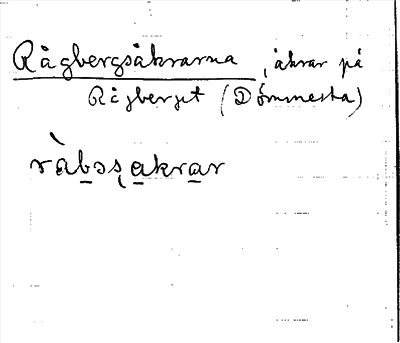 Rågbergsåkrarna, åkrar på
Rågberget (Dömmesta)
ràbɔsʂakrar